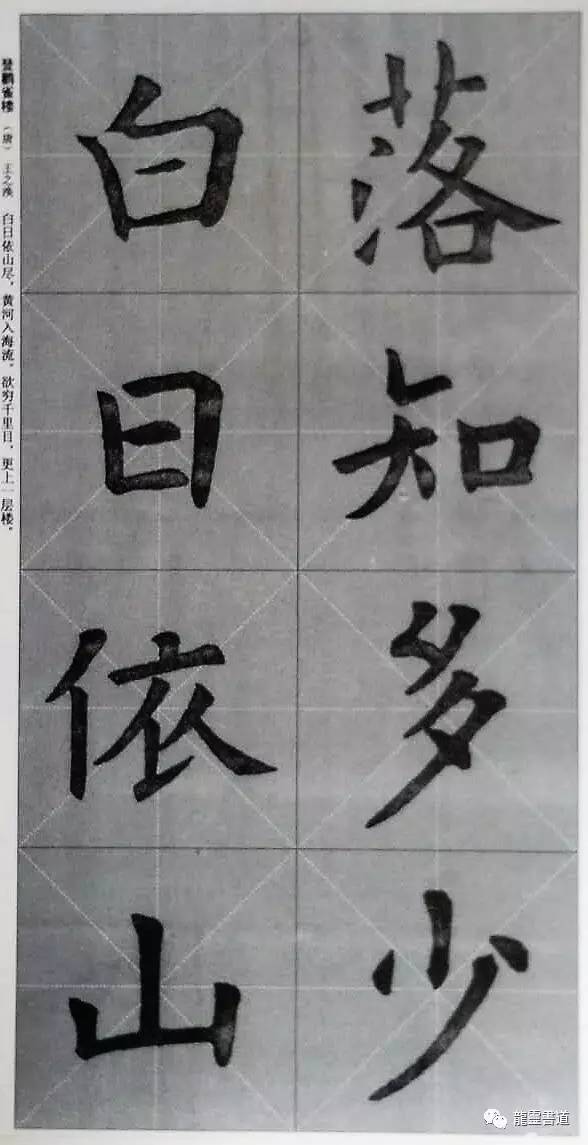 落知多少
白日依山
登鹳雀楼 （唐） 王之涣 白日依山尽，黄河入海流。欲穷千里目，更上一层楼。
龍霊書道